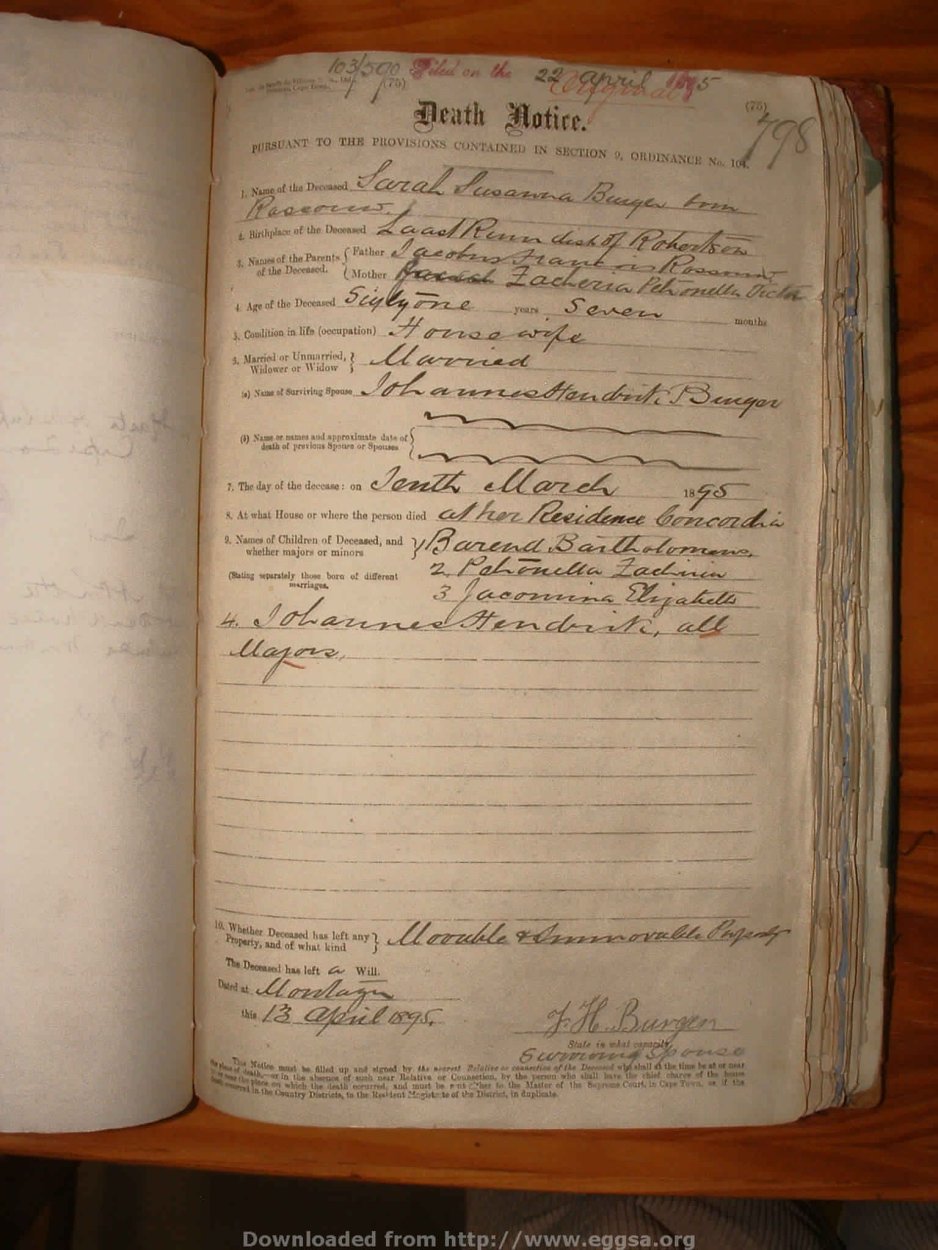 103/590 Filed on the 22 april 1895
(75) Original (75)
798
Death Notice.
PURSUANT TO THE PROVISIONS CONTAINED IN SECTION 9, ORDINANCE No. 104.
1. Name of the Deceased Sarah Susanna Burger born
Rossouw.
2. Birthplace of the Deceased dist of Robertson
3. Names of the Parents of the Deceased. { Father Jacobus Francois Rossouw
Mother Zacheria Petronella Victor
4. Age of the Deceased Sixty one years Seven months
5. Condition in life (occupation) Housewife
6. Married or Unmarried, Widower or Widow } Married
(a) Name of Surviving Spouse Johannes Hendrik Burger
(b) Name or names and approximate date of death of previous Spouse or Spouses
7. The day of the decease: on Tenth March 1895
8. At what House or where the person died at her Residence Concordia
9. Names of Children of Deceased, and whether majors or minors } 1 Barend Bartholomeus,
2. Petronella Zachiria
(Stating separately those born of different marriages.
3 Jacomina Elizabeth
4. Johannes Hendrik, all
Majors.
10. Whether Deceased has left any Property, and of what kind } Movable & Immovable Property
The Deceased has left a Will.
Dated at Montagu
this 13 April 1895.
J. H. Burger
State in what capacity,
Surviving Spouse
This Notice must be filled up and signed by the nearest Relative or connection of the Deceased who shall at the time be at or near
the place of death,—or in the absence of such near Relative or Connection, by the person who shall have the chief charge of the house
in or near the place on which the death occurred, and must be sent either to the Master of the Supreme Court, in Cape Town, or if the
death occurred in the Country Districts, to the Resident Magistrate of the District, in duplicate.
Downloaded from http://www.eggsa.org